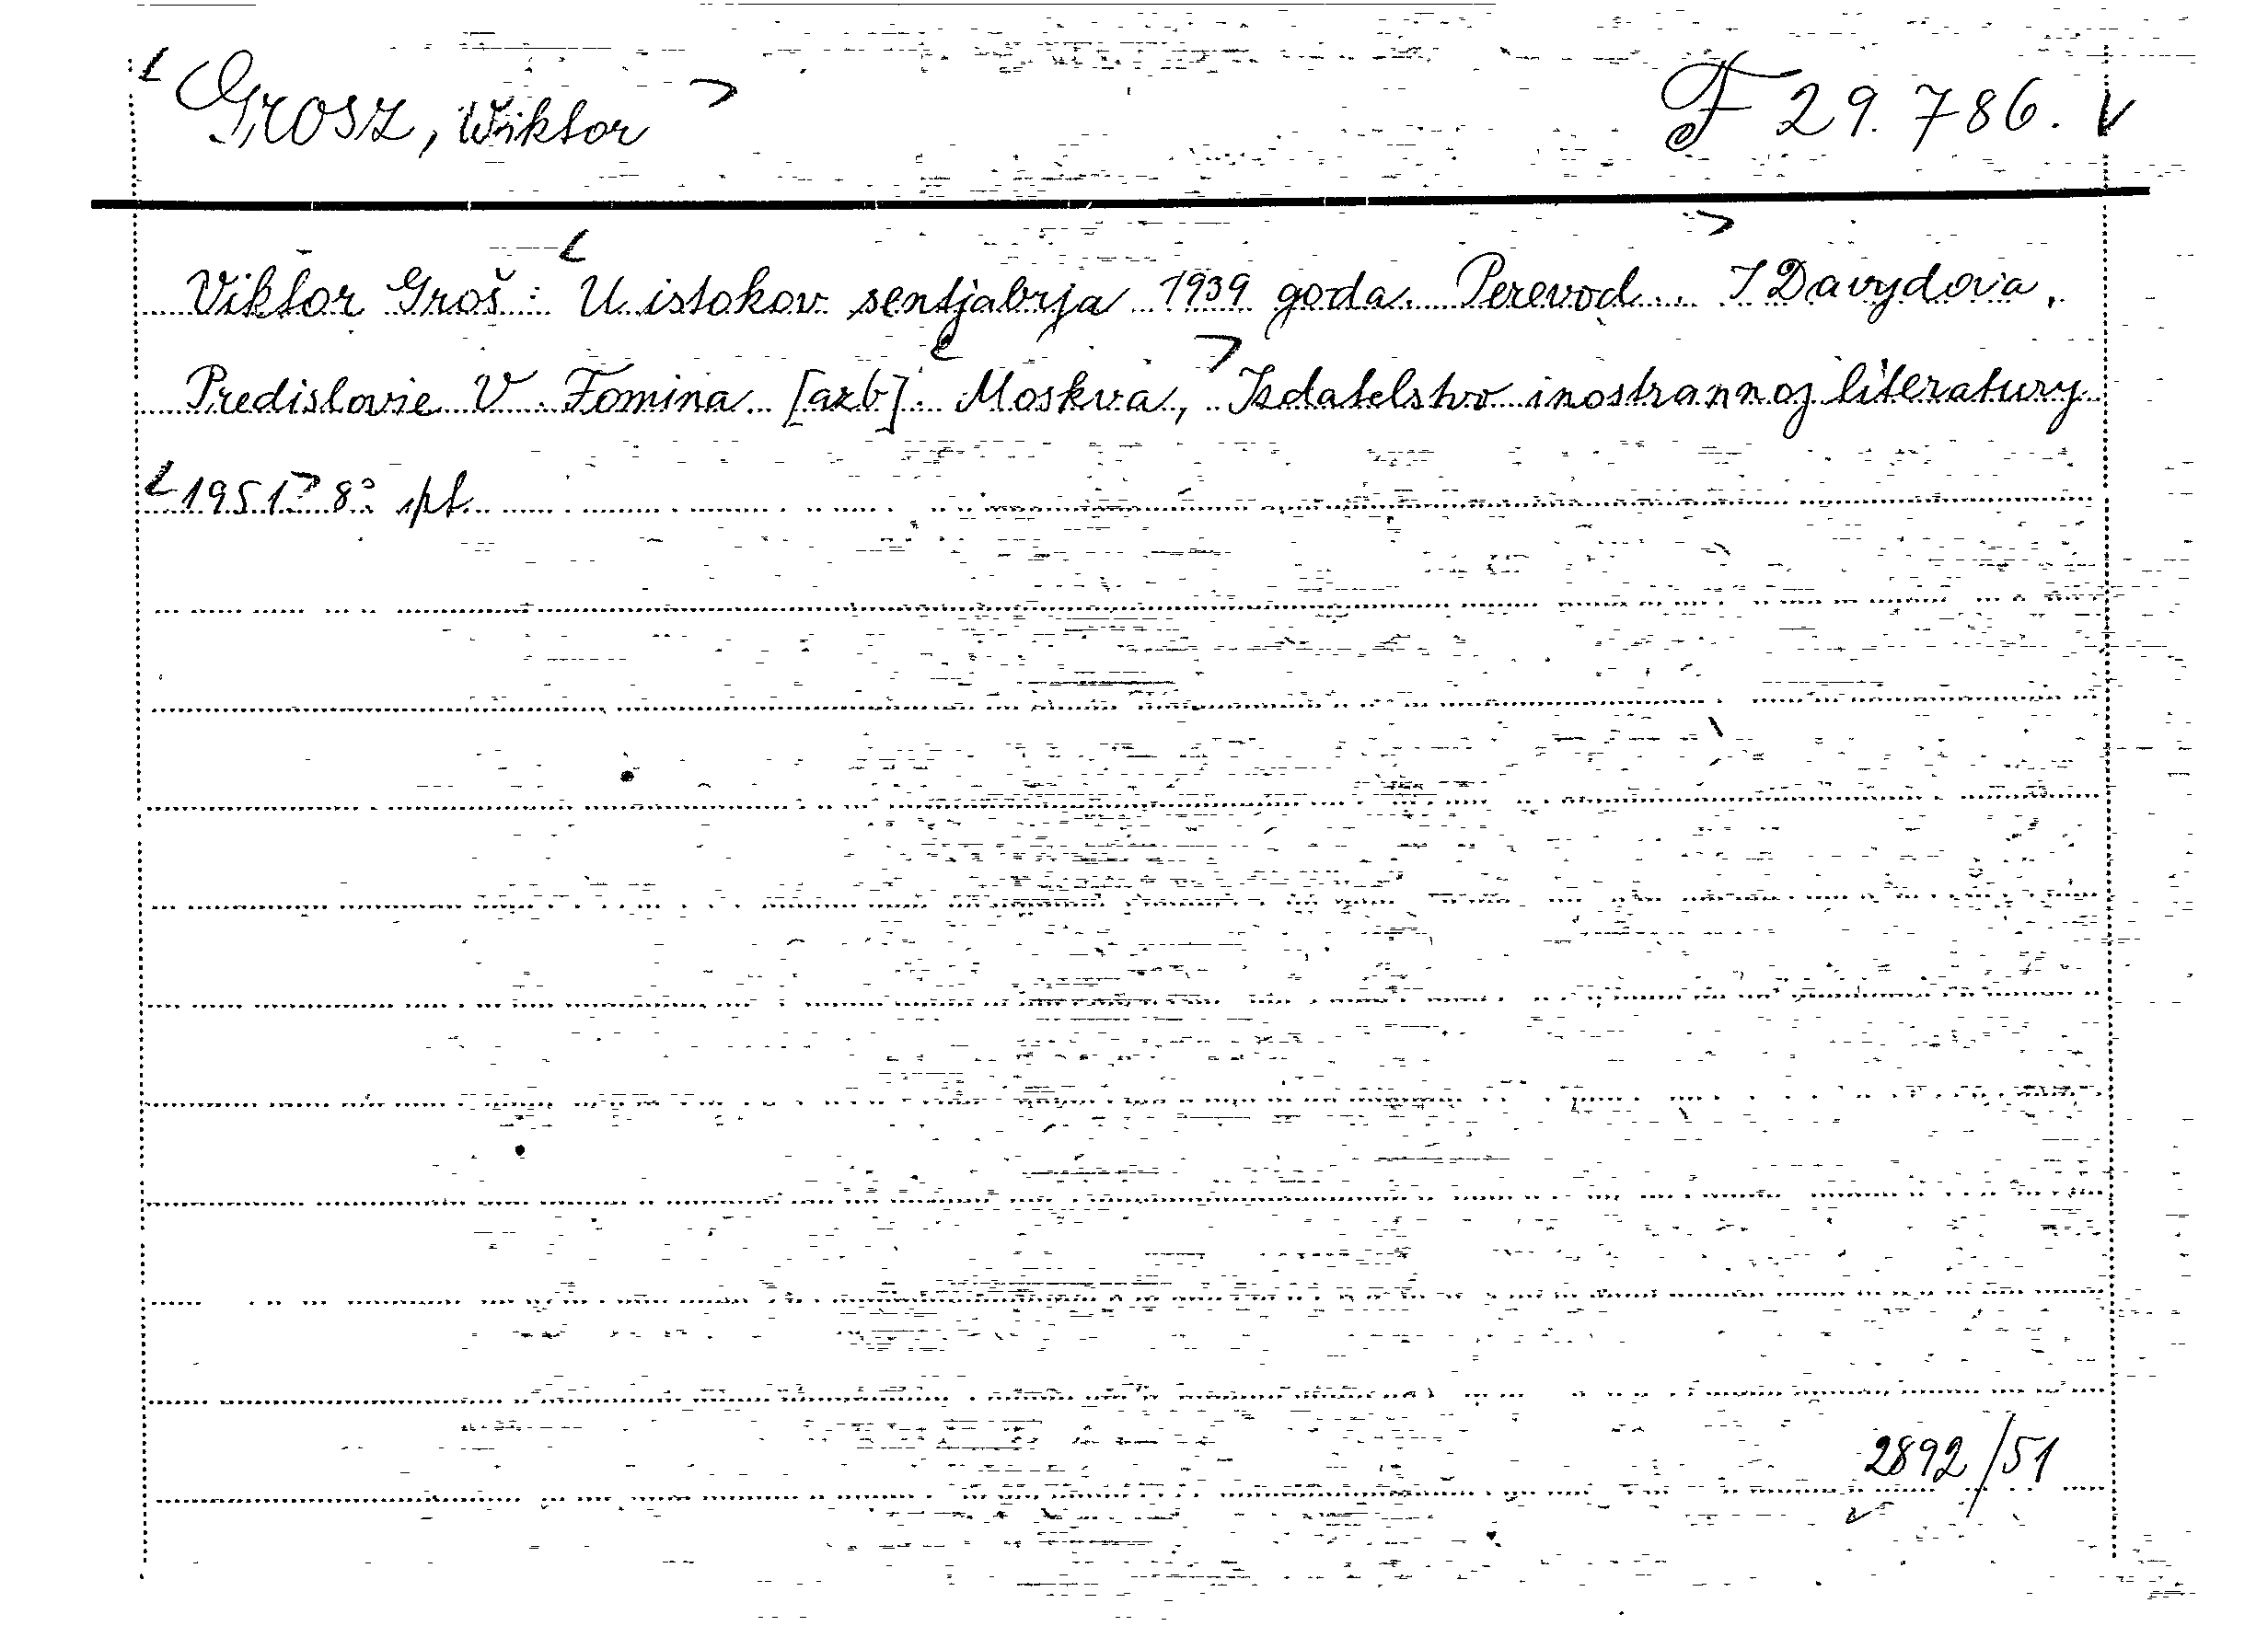 Grosz, Wiktor F 29.786. V
Viktor Groš: U istokov sentjabrja 1939 goda. Perevod.. I Davydova.
Predislovie V. Fomina. [azb]. Moskva, Izdatelstvo inostrannoj literatury
1951. 8° ipt.
2892/51